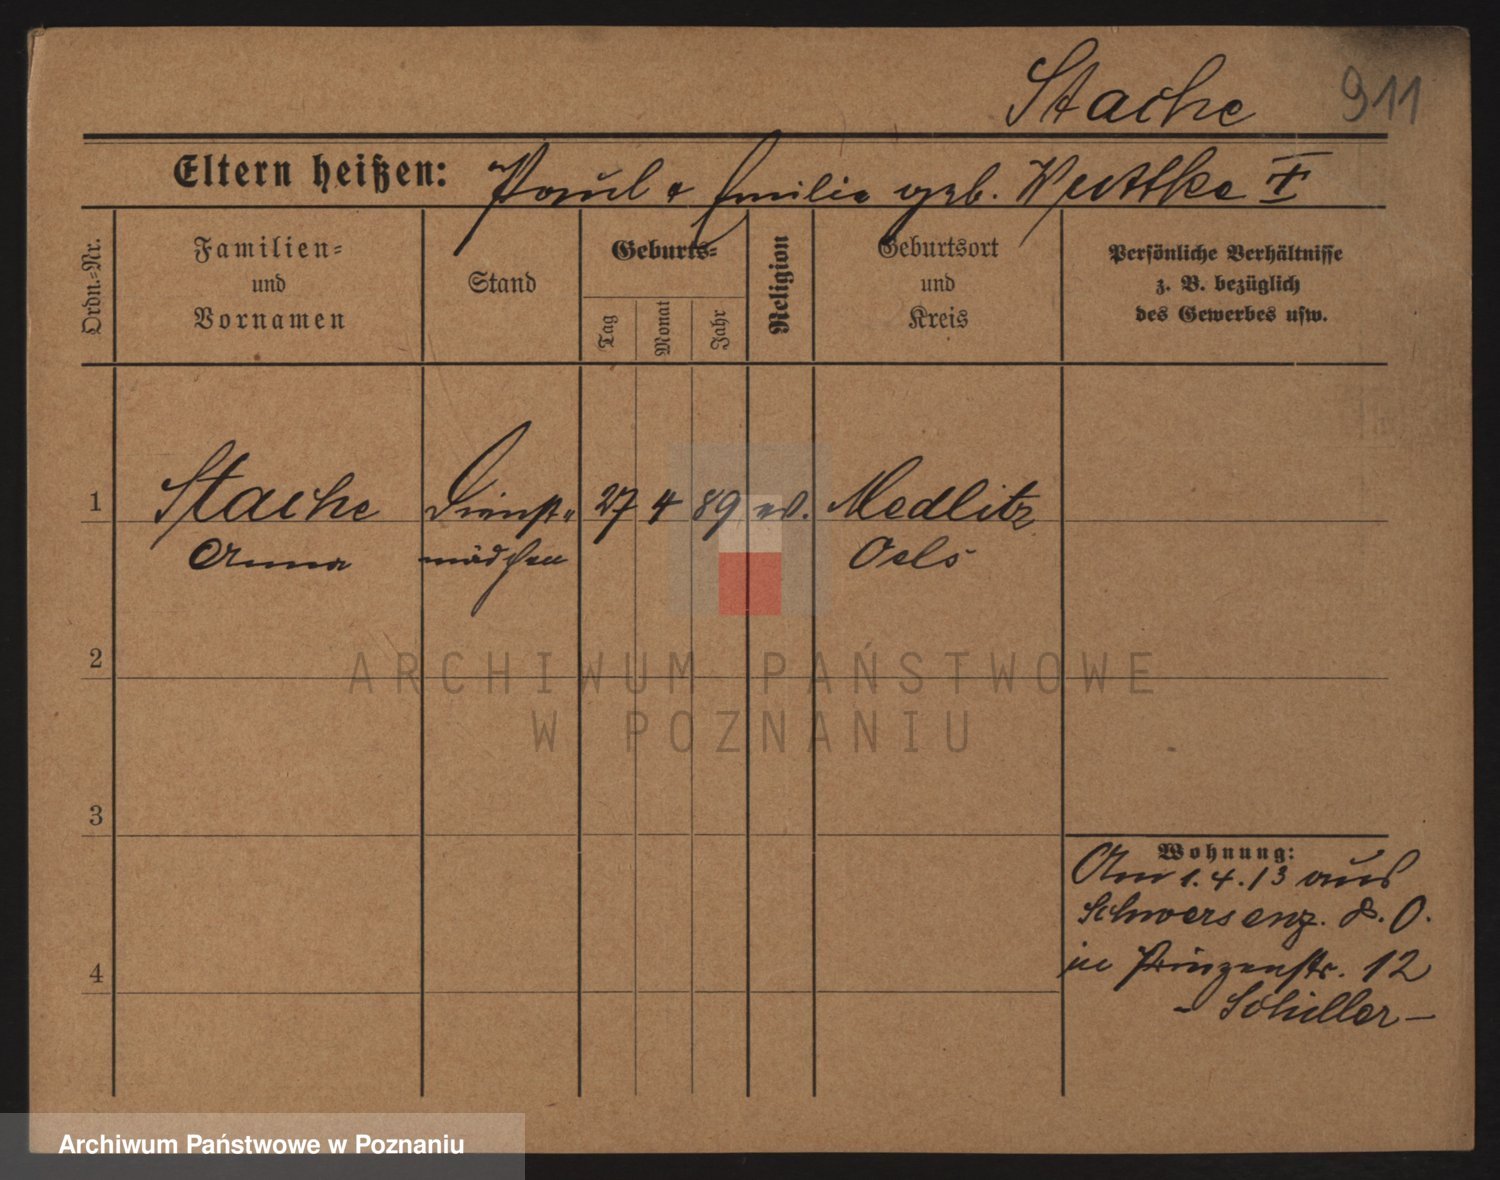 Stache 911
Eltern heißen: Paul & Emilie geb. Wuttke †
Ordn.-Nr.
Familien-
und
Vornamen
Stand
Geburts-
Tag
Monat
Jahr
Religion
Geburtsort
und
Kreis
Persönliche Verhältnisse
z. B. bezüglich
des Gewerbes usw.
1 Stache Dienst- 27 4 89 ev. Medlitz
Anna mädchen Oels
2
ARCHIWUM PAŃSTWOWE
W POZNANIU
3
Wohnung:
Am 1.4.13 aus
Schwersenz. O.
in Prinzenstr. 12
- Schiller -
4
Archiwum Państwowe w Poznaniu